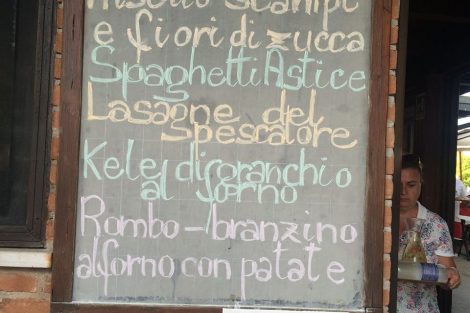 Risotto scampi
e fiori di zucca
Spaghetti Astice
Lasagne del
pescatore
Kele di granchio
al forno
Rombo-branzino
al forno con patate